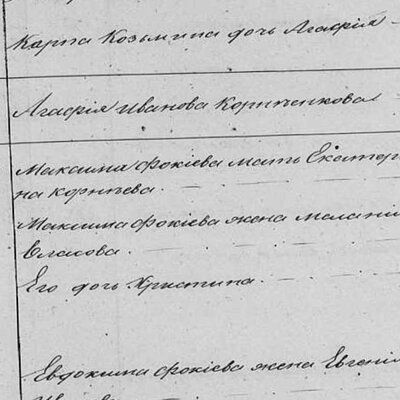 Карпа Козьмина дочь Агафія
Агафія Иванова Корниенкова
Максима Фокіева мать Екатер
на Корнѣева.
Максима Фокіева жена Меланія
Власова.
Его дочь Христина.
Евдокима Фокіева жена Евгенія